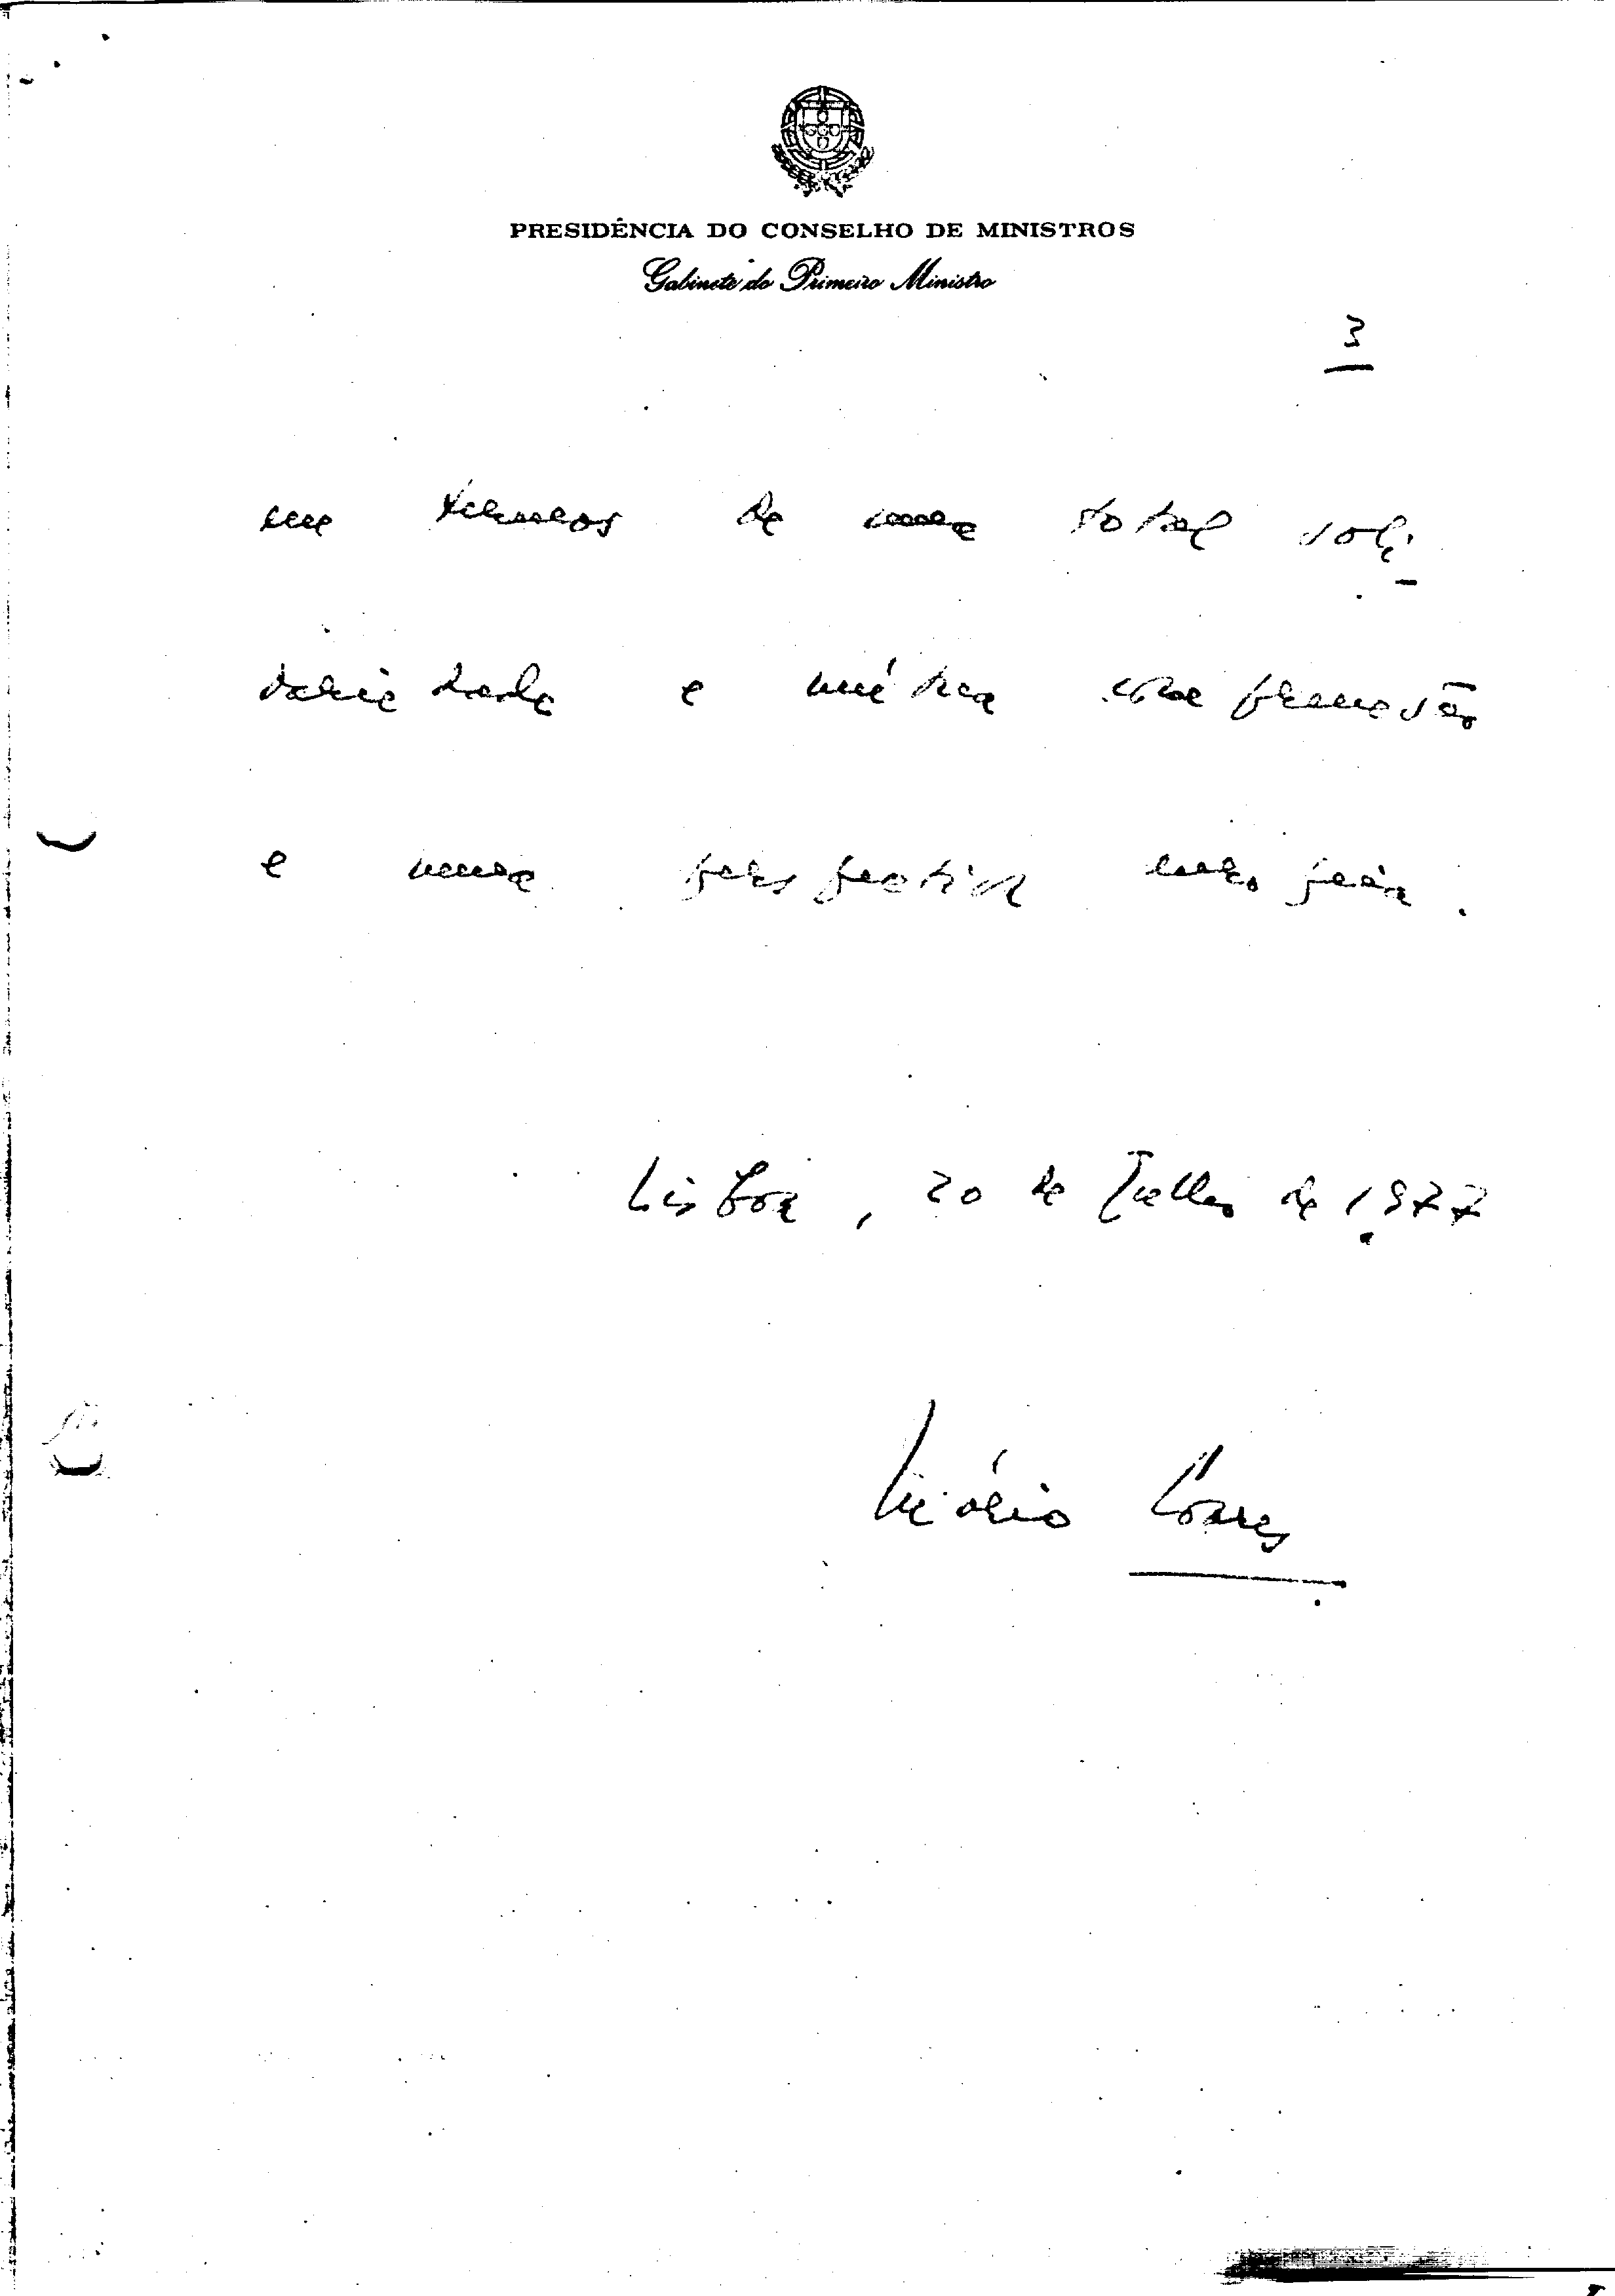 PRESIDÊNCIA DO CONSELHO DE MINISTROS
Gabinete do Primeiro Ministro
3
em termos de uma total soli-
dariedade e mútua compreensão
e numa perspectiva europeia.
Lisboa, 20 de Julho de 1977
Mário Soares